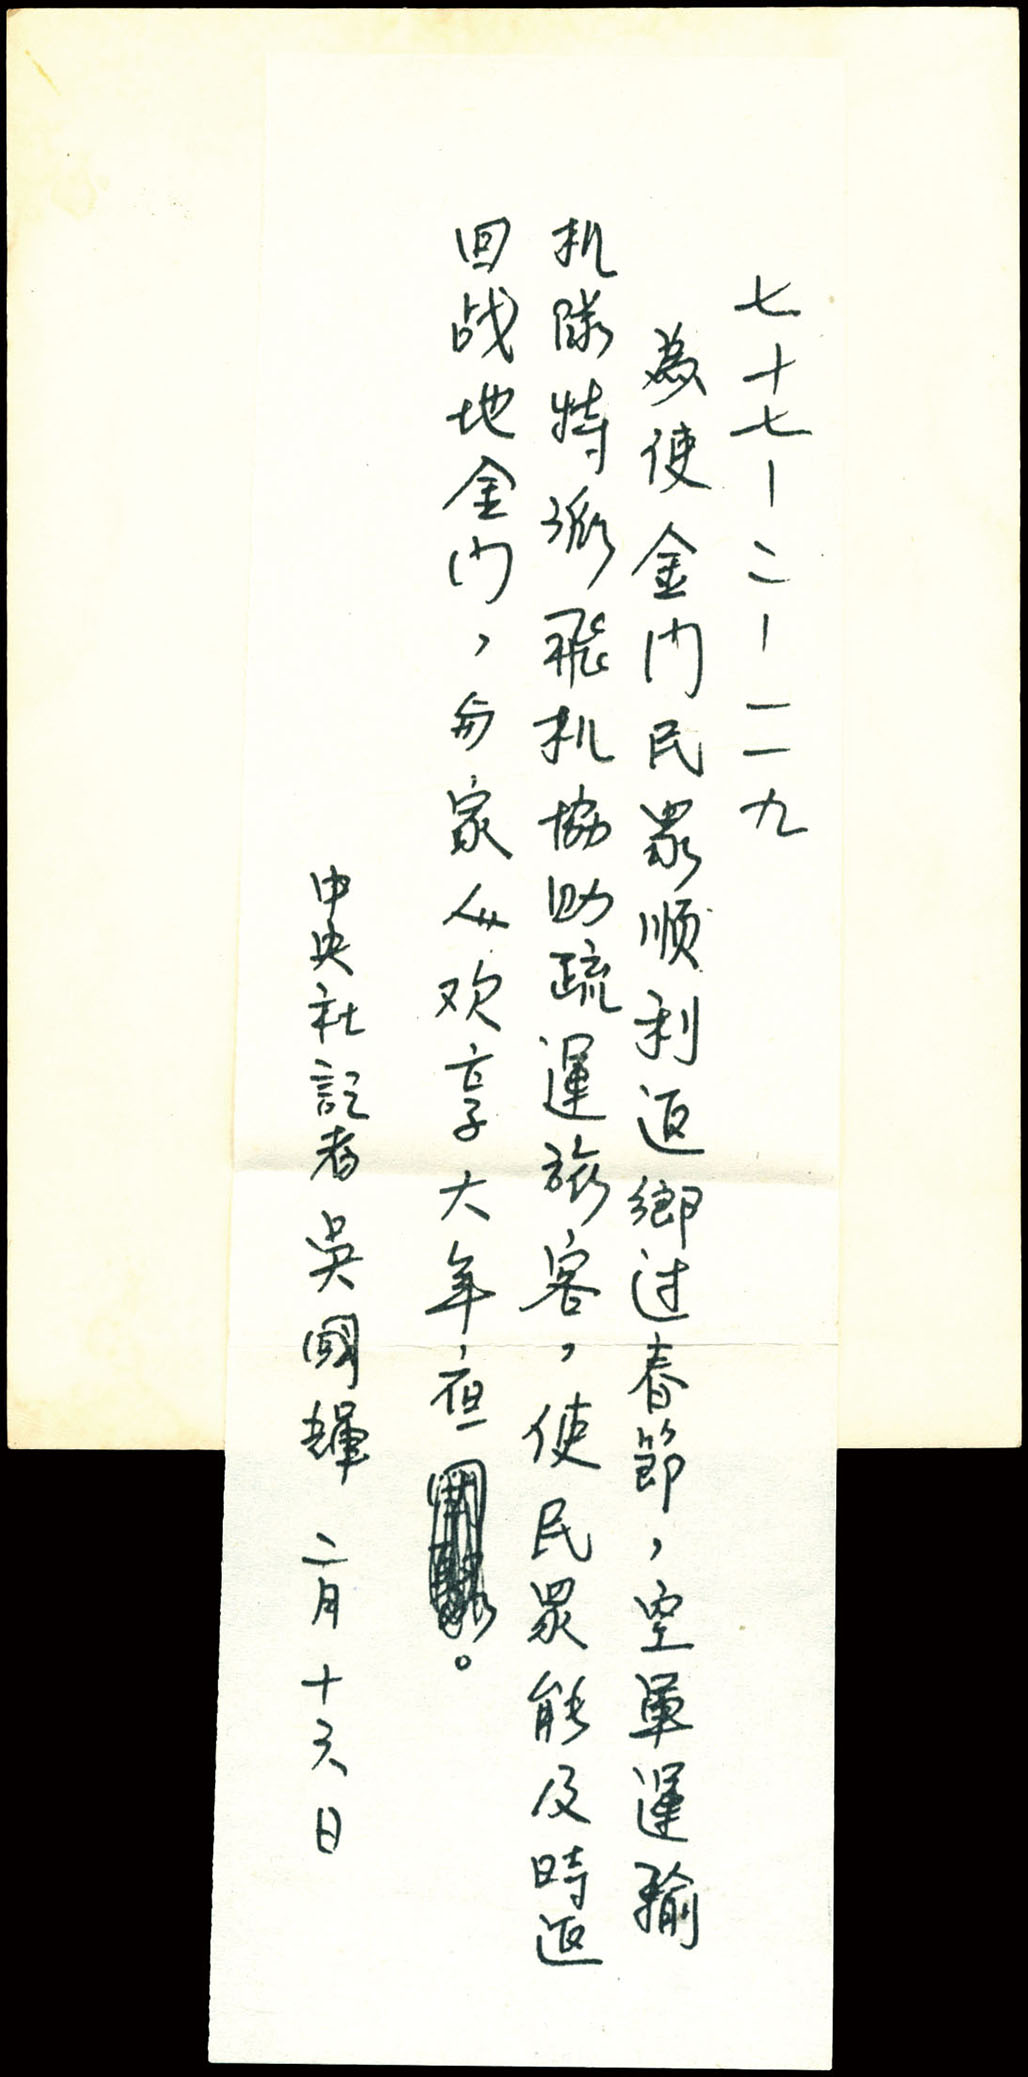 七十七-二-一一九
為使金门民眾顺利返鄉过春節，空軍運輸
机隊特派飛机協助疏運旅客，使民眾能及時返
回战地金门，与家人欢享大年夜。
中央社記者 吳國輝 二月十六日